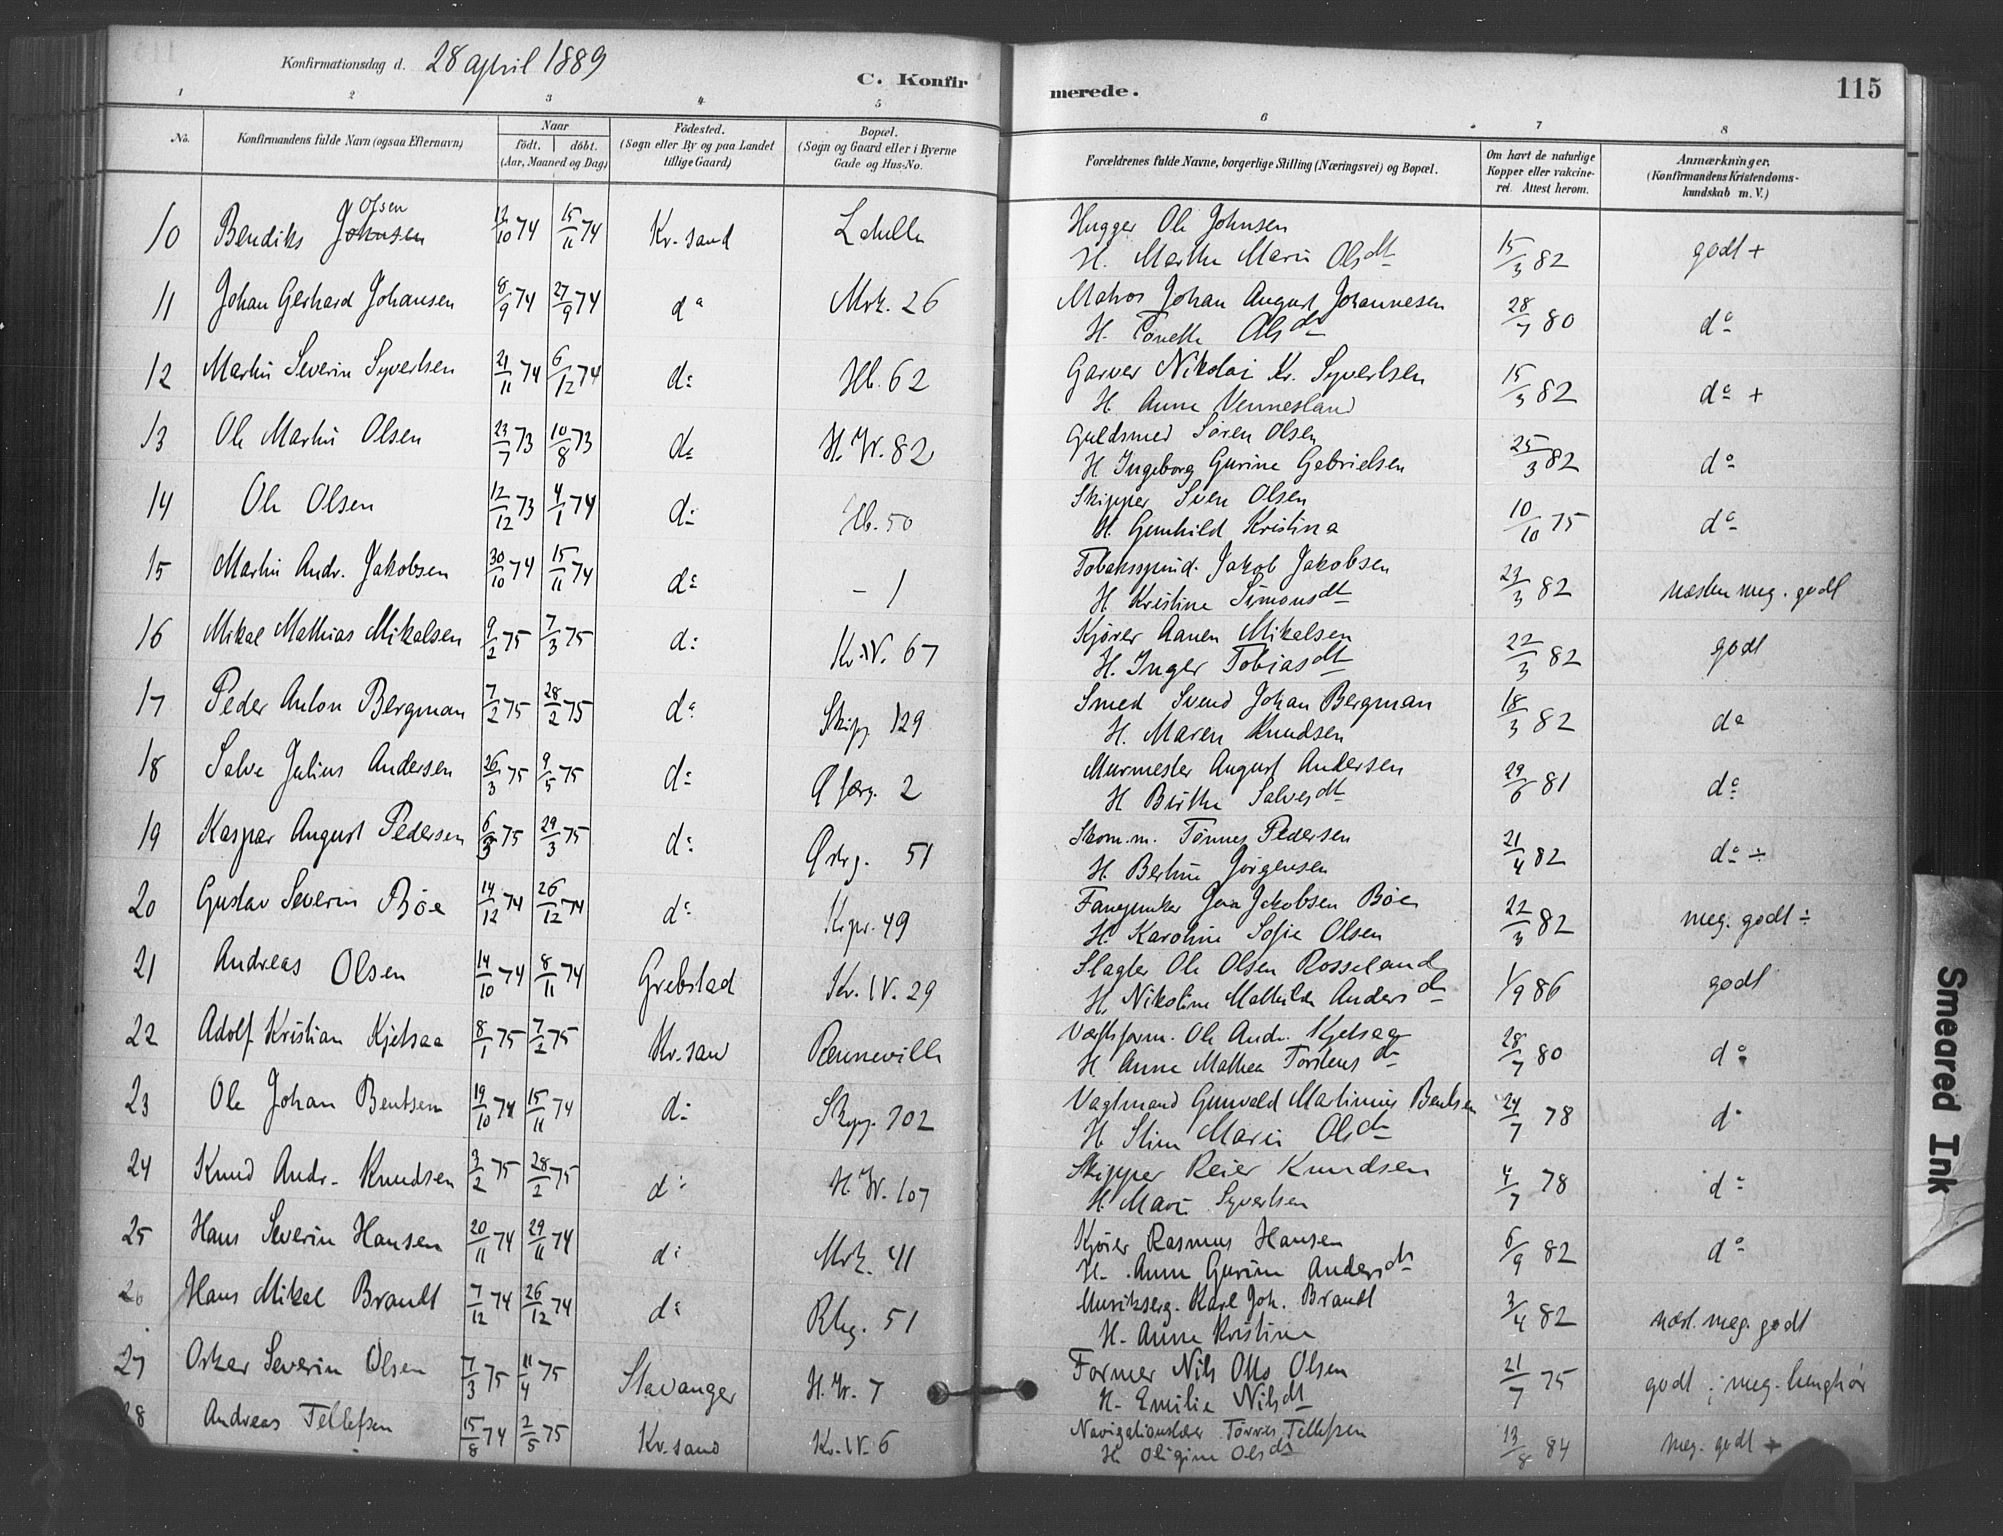 Konfirmationsdag d. 28 april 1889
C. Konfirmerede.
115
1 2 3 4 5 6 7 8
No. Konfirmandens fulde Navn (ogsaa Efternavn) Naar födt. döbt. (Aar, Maaned og Dag) Födested. (Sogn eller By og paa Landet tillige Gaard) Bopæl. (Sogn og Gaard eller i Byerne Gade og Hus-No. Forældrenes fulde Navne, borgerlige Stilling (Næringsvei) og Bopæl. Om havt de naturlige Kopper eller vakcineret. Attest herom. Anmærkninger. (Konfirmandens Kristendomskundskab m. V.)
Olsen
10 Bendiks Johnsen 12/10 74 15/11 74 Kr.sand Hugger Ole Johnsen
H. Marthe Marie Olsdt 15/3 82 godt +
11 Johan Gerhard Johansen 8/9 74 27/9 74 do Mrk. 26 Matros Johan August Johannesen
H. Tonette Olsdt 28/7 80 do
12 Martin Severin Syvertsen 21/11 74 6/12 74 do Hb. 62 Garver Nikolai Kr. Syvertsen
H. Anne Vennesland 15/3 82 do +
13 Ole Martin Olsen 23/7 73 10/8 73 do H.W. 82 Guldsmed Søren Olsen
H. Ingeborg Gurine Gabrielsen 25/3 82 do
14 Ole Olsen 12/12 73 4/1 74 do Hb. 50 Skipper Sven Olsen
H. Gunhild Kristina 10/10 75 do
15 Martin Andr. Jakobsen 30/10 74 15/11 74 do - 1 Tobakspind. Jakob Jakobsen
H. Kristine Simonsdt 23/3 82 næsten meg. godt
16 Mikal Mathias Mikalsen 9/2 75 7/3 75 do Kr.W. 67 Kjører Aanen Mikalsen
H. Inger Tobiasdt 22/3 82 godt
17 Peder Anton Bergman 7/2 75 28/2 75 do Skipp. 129 Smed Svend Johan Bergman
H. Maren Knudsen 18/3 82 do
18 Salve Julius Andersen 26/3 75 9/5 75 do 2 Murmester August Andersen
H. Birthe Salvesdt 29/6 81 do
19 Kaspar August Pedersen 6/3 75 29/3 75 do 51 Skom.m. Tønnes Pedersen
H. Bertine Jørgensen 21/4 82 do ÷
20 Gustav Severin Bøe 14/12 74 26/12 74 do 49 Jakobsen Bøe
H. Karoline Sofie Olsen 22/3 82 meg. godt ÷
21 Andreas Olsen 14/10 74 8/11 74 Grebstad Kr.W. 29 Slagter Ole Olsen Rosseland
H. Nikoline Mathilde Andersdt 1/9 86 godt
22 Adolf Kristian Kjetsaa 8/1 75 7/2 75 Kr.san Værftsform. Ole Andr. Kjetsaa
H. Anne Mathea Torstensdt 28/7 80 do
23 Ole Johan Bentsen 19/10 74 15/11 74 do Skpp. 102 Vagtmand Gunvald Martinius Bentsen
H. Marie Olsdt 24/7 78 do
24 Knud Andr. Knudsen 3/2 75 28/2 75 do H.W. 107 Skipper Reier Knudsen
H. Marie Syvertsen 4/7 78 do
25 Hans Severin Hansen 20/11 74 29/11 74 do Mrk. 41 Kjører Rasmus Hansen
H. Anne Gurine Andersdt 6/9 82 do
26 Hans Mikal Brandt 7/12 74 26/12 74 do 51 Musikserg. Karl Joh. Brandt
H. Anne Kristine 3/4 82 næst. meg. godt
27 Oskar Severin Olsen 7/3 75 11/4 75 Stavanger H.W. 7 Former Nils Otto Olsen
H. Emilie Nilsdt 21/7 75 godt ; meg. tunghør
28 Andreas Tellefsen 15/8 74 2/5 75 Kr.sand Kr.W. 6 Navigationslær Tørres Tellefsen
H. Oligine Olsdt 13/8 84 meg. godt +
Smeared Ink